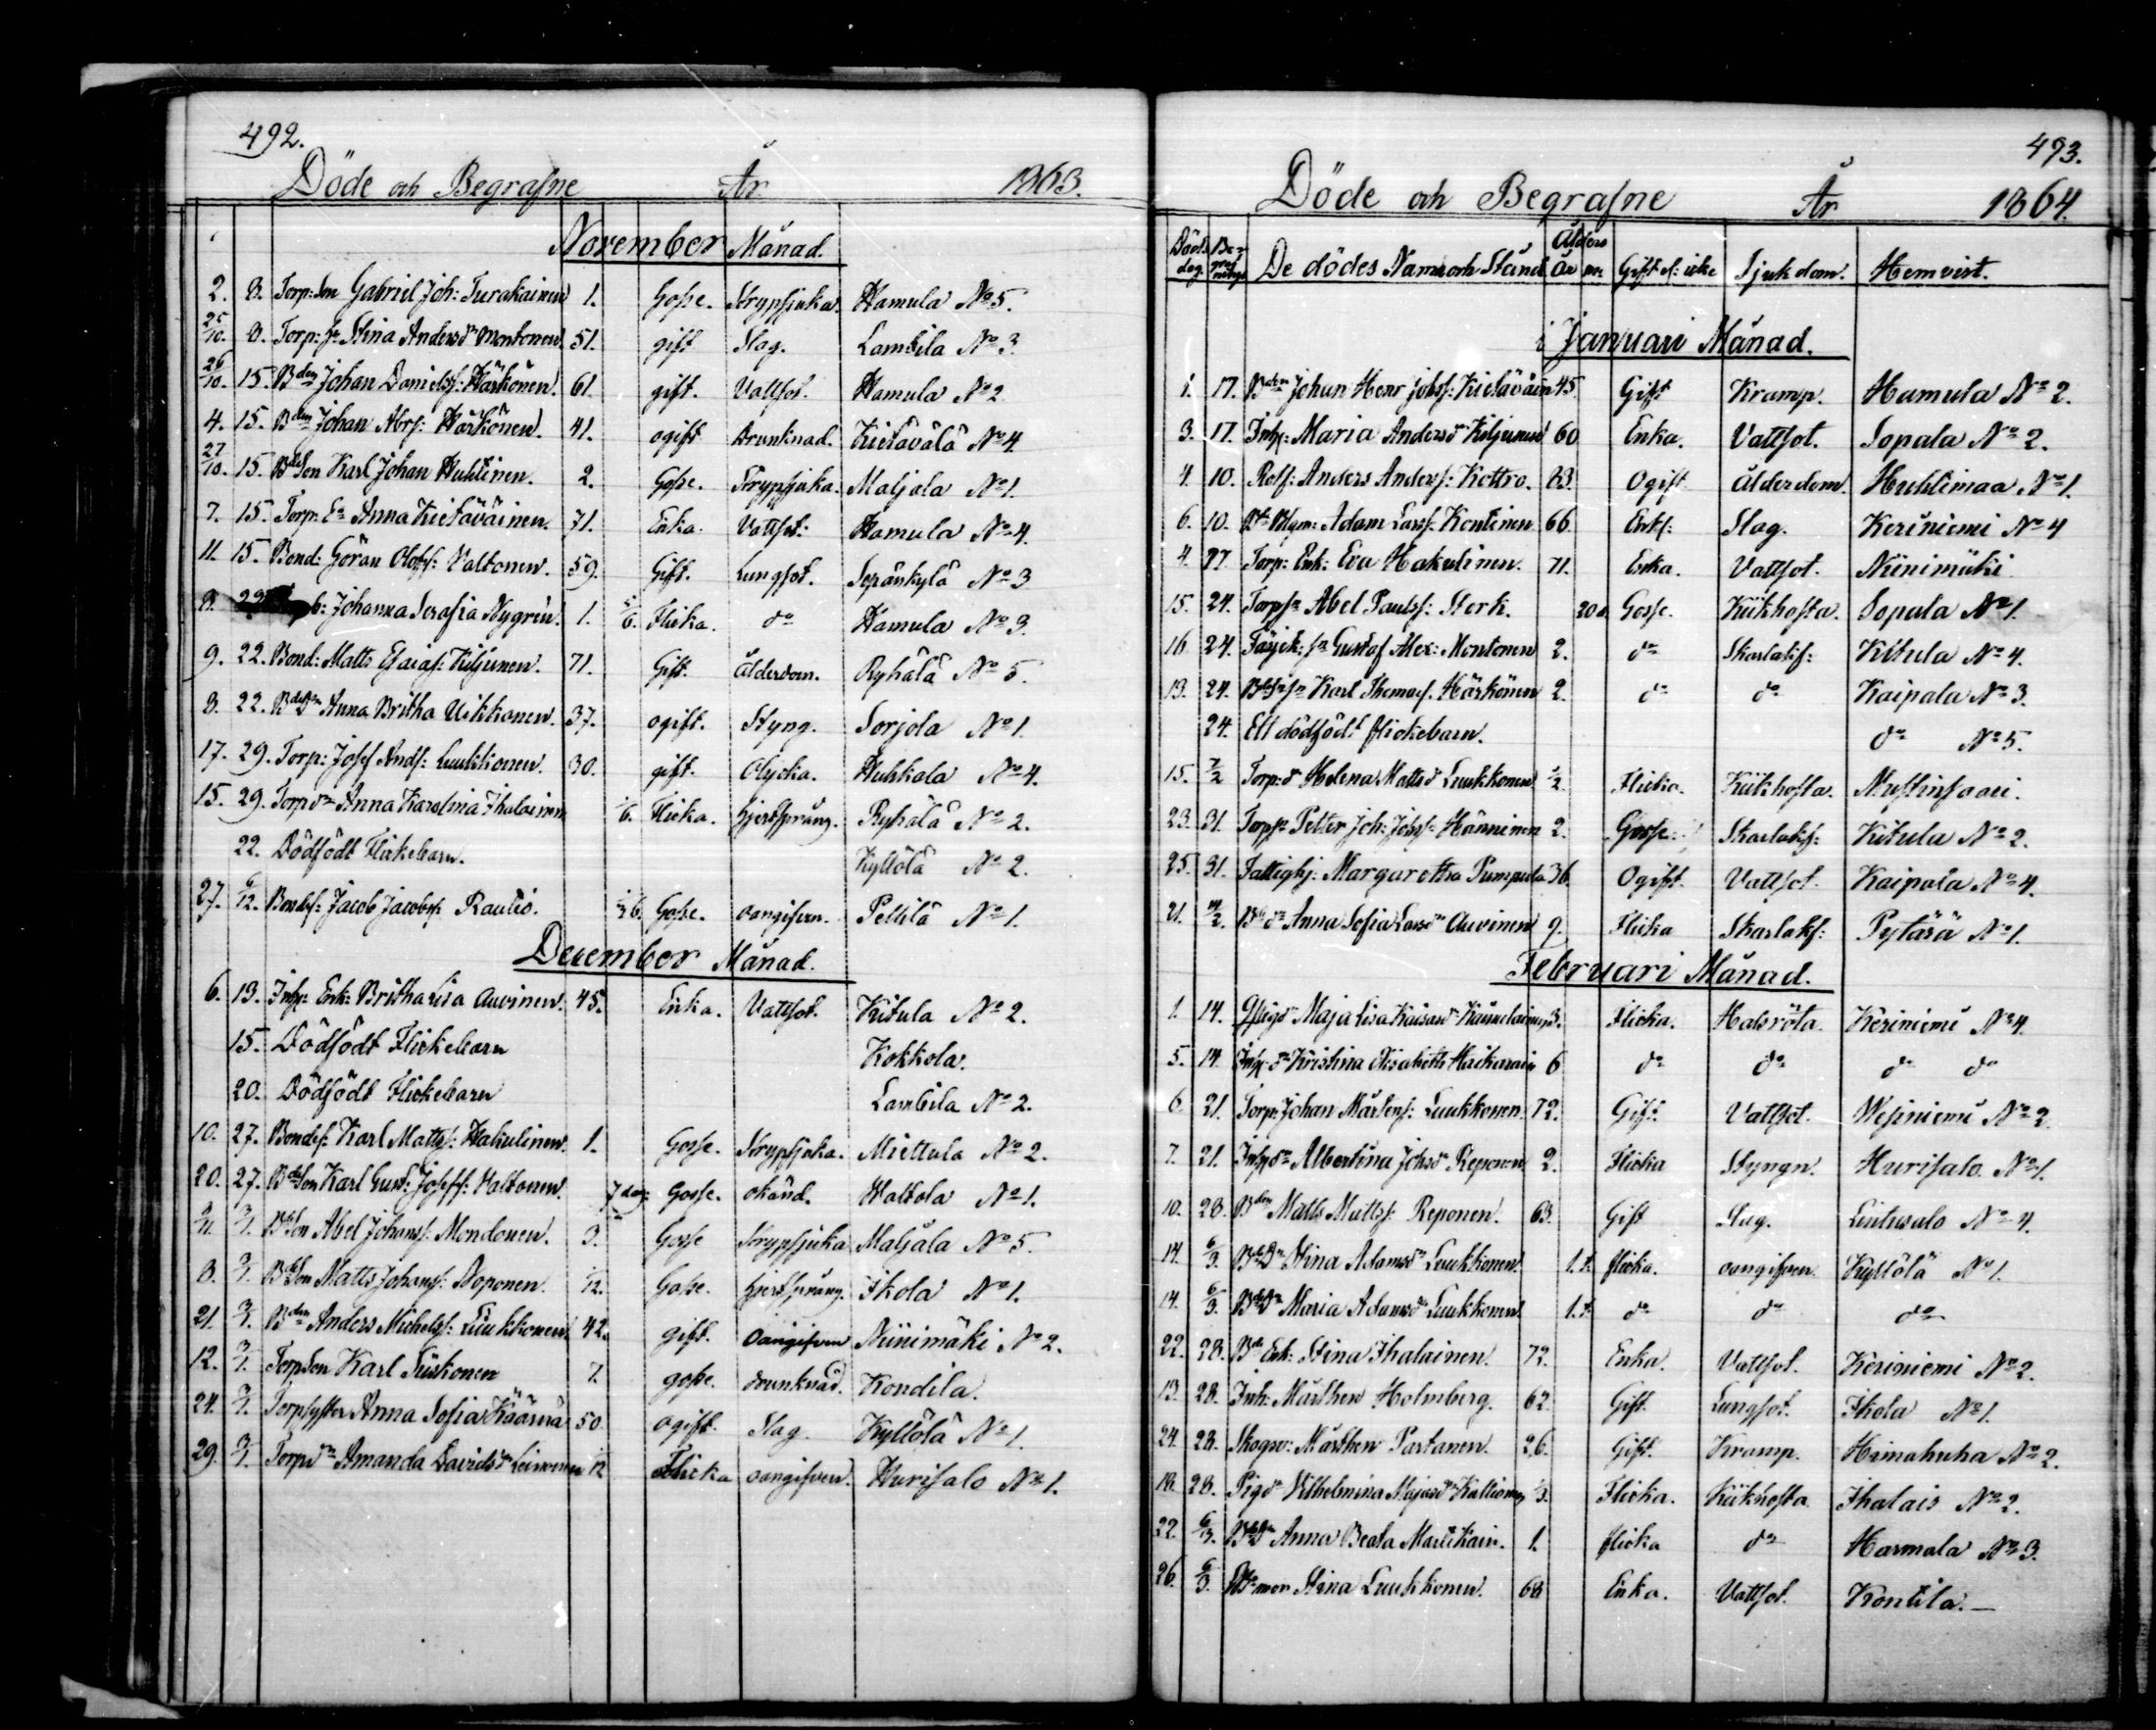 492.
Döde och Begrafne År 1863.
November Månad.
2. 8. Torp: Son Gabriel Joh: Turakainen 1. Gosse. Strypsjuka. Hamula No 5.
25/10. 8. Torp: h:a Stina Andersd:r Montonen 51. gift Slag. Lambila No 3.
26/10. 15. Bden Johan Danielss: Härkönen. 61. gift. Vattsot. Hamula No 2
4. 15. Bden Johan Abrs: Härkönen. 41. ogift Drunknad. Kietävälä No 4.
27/10. 15. BdeSon Karl Johan Huttinen. 2. Gosse. Strypsjuka. Maljala No 1.
7. 15. Torp: E:a Anna Kietäväinen. 71. Enka. Vattsot: Hamula No 4.
11. 15. Bond: Göran Olofs: Valtonen. 59. Gift. Lungsot. Sepänkylä No 3
8. 29 b: Johanna Serafia Nygrén. 1. /6. Flicka. do Hamula No 3.
9. 22. Bond: Matts Esaias: Kiljunen. 71. Gift. Ålderdom. Ryhälä No 5.
8. 22. BdeD:r Anna Britha Ukkonen. 37. ogift. Styng. Sorjola No 1.
17. 29. Torp: Josef Ands: Luukkonen. 30. gift. Olycka. Kuhkala No 4.
15. 29. Torp d:r Anna Karolina Ihalainen /6. Flicka. hjertsprång. Ryhälä No 2.
22. Dödfödt Flickebarn. Kyllölä No 2.
27. 6/12. Bondes: Jacob Jacobss: Rautio. 6. Gosse. oangifven. Pellilä No 1.
December Månad.
6. 13. Inhs: Enk: Britha Lisa Auvinen. 45. Enka. Vattsot. Kitula No 2.
15. Dödfödt Flickebarn Kokkola.
20. Dödfödt Flickebarn Lambila No 2.
10. 27. Bondes: Karl Mattss: Hakulinen. 1. Gosse. Strypsjuka. Miettula No 2.
20. 27. BdeSon Karl Gust: Josefs: Valtonen. 7 dag: Gosse. okänd. Waltola No 1.
/11. 3/1. BdeSon Abel Johanss: Mondonen. 3. Gosse Strypsjuka Maljala No 5.
8. 3/1. BdeSon Matts Johanss: Noponen. /12. Gosse. hjertsprång. Ikola No 1.
21. 3/1. Bden Anders Michelss: Luukkonen 42. gift. Oangifven Niinimäki No 2.
12. 3/1. TorpSon Karl Tiiskonen 7. gosse. drunknad. Kondila.
24. 3/1. Torpsyster Anna Sofia Käärnä 50. ogift. Slag. Kyllölä No 1.
29. 3/1. Torp d:r Amanda Davidsd:r Leinonen /12 Flicka oangifven. Hurisalo No 1.
493.
Döde och Begrafne År 1864.
Döds dag. Be- graf nings De dödes Namn och Stånd Ålders År m Gift el: icke Sjukdom. Hemvist.
i Januari Månad.
1. 17. Bden Johan Henr Johss: Kietäväin 45. Gift Kramp. Hamula No 2.
3. 17. Inhs: Maria Andersd:r Kiljunen 60 Enka. Vattsot. Sopala No 2.
4. 10. Rotf: Anders Anderss: Kettro. 83. Ogift Ålderdom. Huttimaa No 1.
6. 10. Adam Larss: Kontinen 66. Enkl: Slag. Keriniemi No 4
4. 17 Torp: Enk: Eva Hakulinen. 71. Enka. Vattsot. Niinimäki
15. 24. Torps:n Abel Paulss: Stork. 20 d. Gosse. Kikhosta. Sopala No 1.
16. 24. Färjek: s:n Gustaf Alex: Montonen 2. do Skarlaksf: Kitula No 4.
19. 24. Karl Thomass. Härkönen 2. do do Kaipala No 3.
24. Ett dödfödt flickebarn. do No 5.
15. 7/2 Torp: d:r Helena Mattsd:r Luukkonen 1/2. Flicka. Kikhosta. Mustinsaari.
23. 31. Torps:n Petter Joh: Johss:n Hänninen 2. Gosse. Skarlaksf: Kitula No 2.
25. 31. Fattighj: Margaretha Pumpula 36. Ogift. Vattsot. Kaipala No 4.
21. 14/2. B:d d:r Anna Sofia Larsd:r Auvinen 9. Flicka Skarlaksf: Pytärä No 1.
Februari Månad.
1. 14. Maja Lisa Kaisasd:r 3. Flicka. Halsröta. Keriniemi No 4.
5. 14. Inhs: d:r Kristina Elisabeth Haikarain 6 do do do do
6. 21. Torp: Johan Mårtens: Luukkonen. 72. Gift. Vattsot. Wesiniemi No 2.
7. 21. Inhs d:r Albertina Johsd:r Reponen 2. Flicka Styngn. Hurisalo No 1.
10. 28. Bden Matts Mattss: Reponen. 63. Gift Slag. Liutusalo No 4.
14. 6/3. BdeD:r Stina Adamsd:r Luukkonen. 1.t. flicka. oangifven. Kyllölä No 1.
14. 6/3. BdeD:r Maria Adamsd:r Luukkonen 1.t. do do do
22. 28. Bde Enk: Stina Ihalainen. 72. Enka. Vattsot. Keriniemi No 2.
13. 28. Inh: Mårthen Holmberg. 62. Gift. Lungsot. Ikola No 1.
24. 28. Skogsv: Mårthen Partanen. 26. Gift. Kramp. Haimahuha No 2.
18. 28. Pig d:r Vilhelmina Majasd:r 3. Flicka. Kikhosta. Ihalais No 2.
22. 6/3. BdeD:r Anna Beata Martikain. 1. flicka do Harmala No 3.
26. 6/3. mor Stina Luukkonen. 68 Enka. Vattsot. Kontila.—